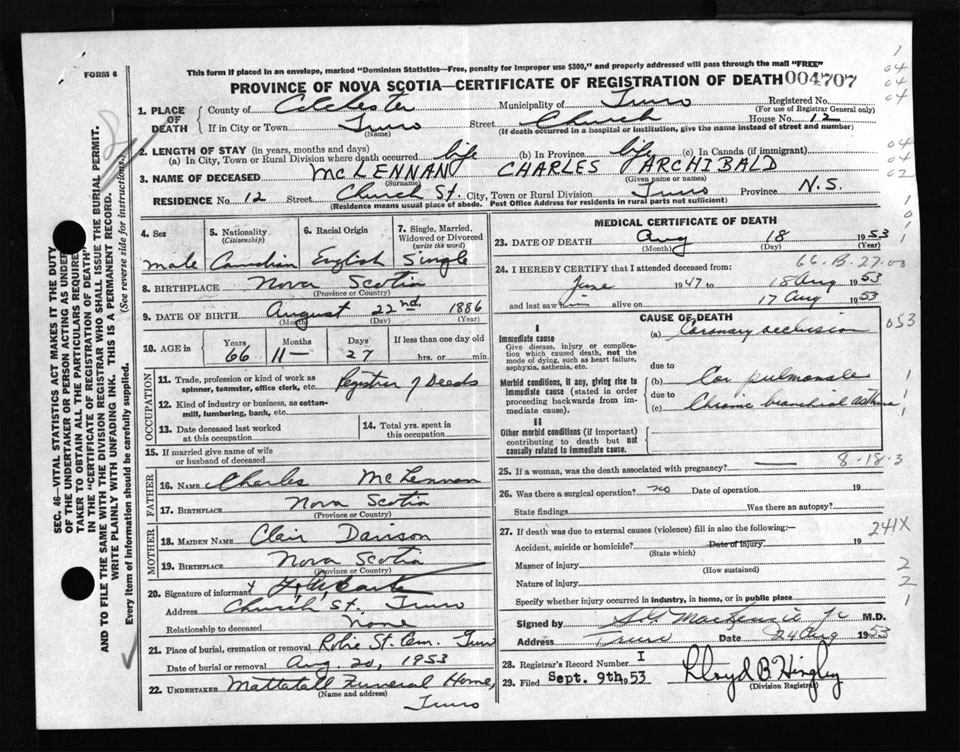 FORM 6
This form if placed in an envelope, marked "Dominion Statistics—Free, penalty for improper use $300," and properly addressed will pass through the mail "FREE"
PROVINCE OF NOVA SCOTIA—CERTIFICATE OF REGISTRATION OF DEATH 004707
1. PLACE OF DEATH County of Colchester Municipality of Truro Registered No.
(For use of Registrar General only)
If in City or Town Truro Street Church House No. 12
(Name) (If death occurred in a hospital or institution, give the name instead of street and number)
2. LENGTH OF STAY (in years, months and days)
(a) In City, Town or Rural Division where death occurred life (b) In Province life (c) In Canada (if immigrant)
3. NAME OF DECEASED McLENNAN CHARLES ARCHIBALD
(Surname) (Given name or names)
RESIDENCE No. 12 Street Church St. City, Town or Rural Division Truro Province N.S.
(Residence means usual place of abode. Post Office Address for residents in rural parts not sufficient)
SEC. 46—VITAL STATISTICS ACT MAKES IT THE DUTY
OF THE UNDERTAKER OR PERSON ACTING AS UNDER-
TAKER TO OBTAIN ALL THE PARTICULARS REQUIRED
IN THE "CERTIFICATE OF REGISTRATION OF DEATH"
AND TO FILE THE SAME WITH THE DIVISION REGISTRAR WHO SHALL ISSUE THE BURIAL PERMIT.
WRITE PLAINLY WITH UNFADING INK. THIS IS A PERMANENT RECORD.
Every item of Information should be carefully supplied. (See reverse side for instructions.)
4. Sex 5. Nationality (Citizenship) 6. Racial Origin 7. Single, Married, Widowed or Divorced (write the word)
male Canadian English Single
8. BIRTHPLACE Nova Scotia
(Province or Country)
9. DATE OF BIRTH August 22nd 1886
(Month) (Day) (Year)
10. AGE in Years Months Days If less than one day old
66 11 27 hrs. or min.
OCCUPATION
11. Trade, profession or kind of work as spinner, teamster, office clerk, etc. Registrar of Deeds
12. Kind of industry or business, as cotton-mill, lumbering, bank, etc.
13. Date deceased last worked at this occupation
14. Total yrs. spent in this occupation
15. If married give name of wife or husband of deceased
FATHER
16. NAME Charles McLennan
17. BIRTHPLACE Nova Scotia
(Province or Country)
MOTHER
18. MAIDEN NAME Clair Davison
19. BIRTHPLACE Nova Scotia
(Province or Country)
20. Signature of informant
Address Church St., Truro
Relationship to deceased None
21. Place of burial, cremation or removal Robie St. Cem. Truro
Date of burial or removal Aug. 20, 1953
22. UNDERTAKER Mattatall Funeral Home,
(Name and address) Truro
MEDICAL CERTIFICATE OF DEATH
23. DATE OF DEATH Aug 18 1953
(Month) (Day) (Year)
66.B.27.00
24. I HEREBY CERTIFY that I attended deceased from:
June 1947 to 18 Aug 1953
and last saw him alive on 17 Aug 1953
CAUSE OF DEATH
I
Immediate cause (a) Coronary occlusion 053
Give disease, injury or complication which caused death, not the mode of dying, such as heart failure, asphyxia, asthenia, etc.
due to
Morbid conditions, if any, giving rise to immediate cause (stated in order proceeding backwards from immediate cause). (b) Cor pulmonale
due to
(c) Chronic bronchial asthma
II
Other morbid conditions (if important) contributing to death but not causally related to immediate cause.
25. If a woman, was the death associated with pregnancy? — 8-18-3
26. Was there a surgical operation? no Date of operation 19
State findings Was there an autopsy?
27. If death was due to external causes (violence) fill in also the following:— 241X
Accident, suicide or homicide? Date of injury 19
(State which)
Manner of injury 2
(How sustained)
Nature of injury 2
Specify whether injury occurred in industry, in home, or in public place 1
Signed by MacKenzie M.D.
Address Truro Date 24 Aug 1953
28. Registrar's Record Number I
29. Filed Sept. 9th, 1953 Lloyd B Hingley
(Division Registrar)